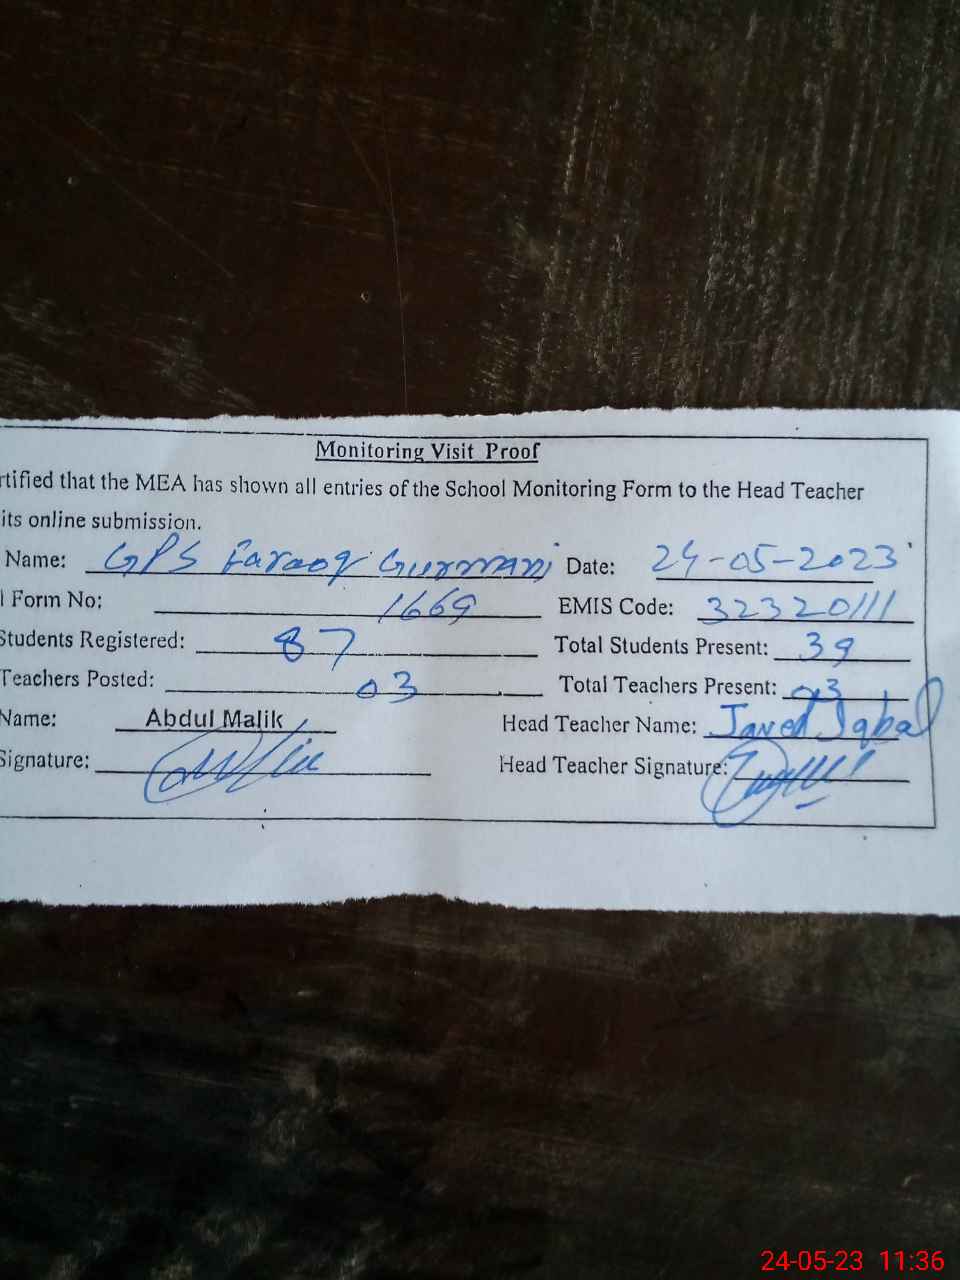 Monitoring Visit Proof
rtified that the MEA has shown all entries of the School Monitoring Form to the Head Teacher
its online submission.
Name: GPS Farooq Gurmani Date: 24-05-2023
l Form No: 1669 EMIS Code: 32320111
Students Registered: 87 Total Students Present: 39
Teachers Posted: 03 Total Teachers Present: 03
Name: Abdul Malik Head Teacher Name: Javed Iqbal
Signature: Head Teacher Signature:
24-05-23 11:36